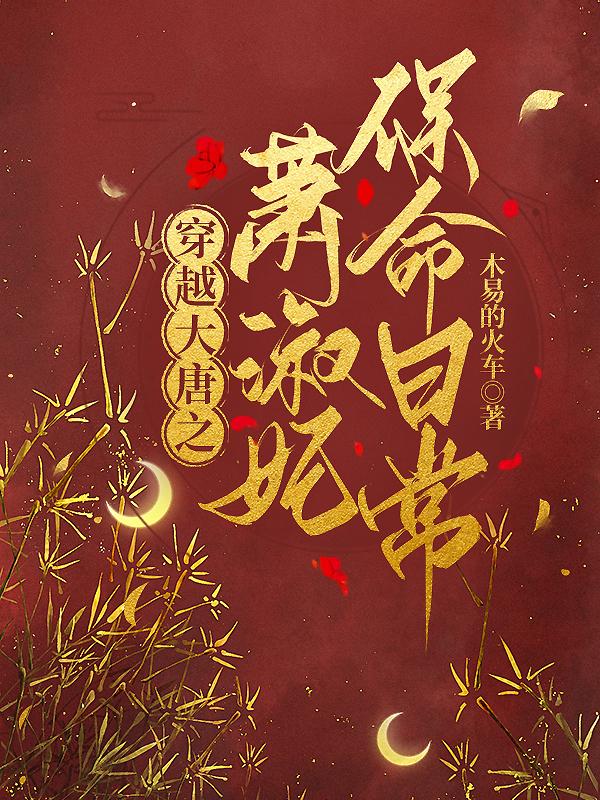 穿越大唐之
萧淑妃
保命日常
木易的火车◎著